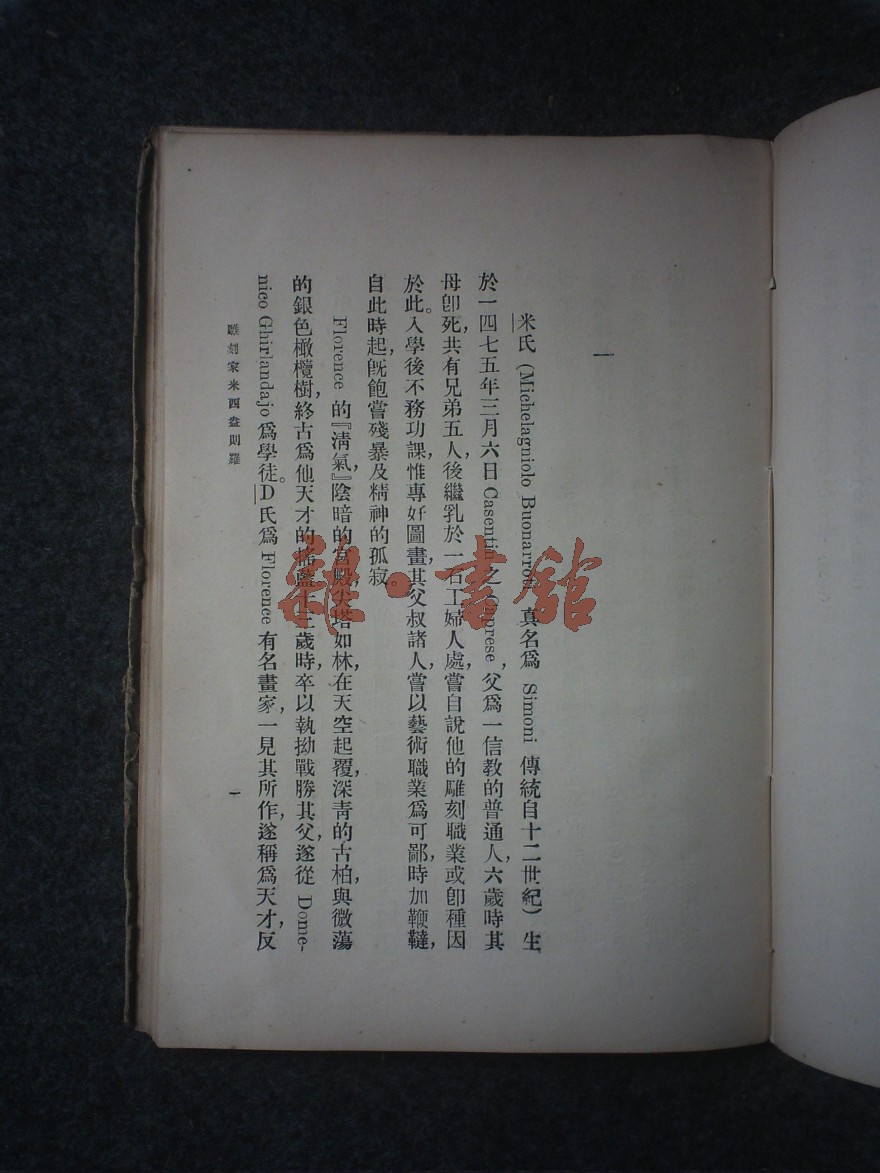 一
米氏 (Michelagniolo Buonarroti 真名爲 Simoni 傳統自十二世紀) 生
於一四七五年三月六日Casentin之Caprese,父爲一信教的普通人,六歲時其
母卽死,共有兄弟五人,後繼乳於一石工婦人處,嘗自說他的雕刻職業或卽種因
於此。入學後不務功課,惟專好圖畫,其父叔諸人,嘗以藝術職業爲可鄙,時加鞭韃,
自此時起,旣飽嘗殘暴及精神的孤寂。
Florence 的『淸氣,』陰暗的宮殿,尖塔如林,在天空起覆,深青的古柏,與微蕩
的銀色橄欖樹,終古爲他天才的搖籃十三歲時,卒以執拗戰勝其父,遂從 Dome-
nico Ghirlandajo 爲學徒。D氏爲 Florence 有名畫家,一見其所作,遂稱爲天才,反
雕刻家米西盎則羅
一
雜·書館